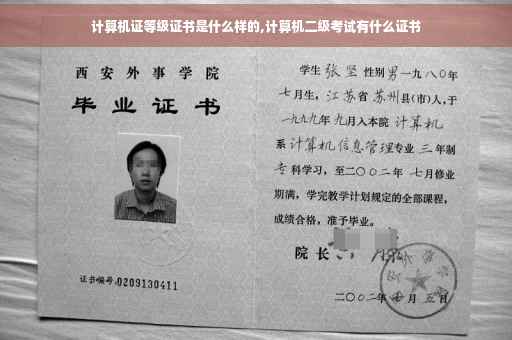 计算机证等级证书是什么样的,计算机二级考试有什么证书
西安外事学院
毕业证书
证书编号:0209130411
学生张坚性别男一九八〇年
七月生,江苏省苏州县(市)人,于
一九九九年九月入本院计算机
系计算机信息管理专业三年制
专科学习,至二〇〇二年七月修业
期满,学完教学计划规定的全部课程,
成绩合格,准予毕业。
院长
二〇〇二年七月五日